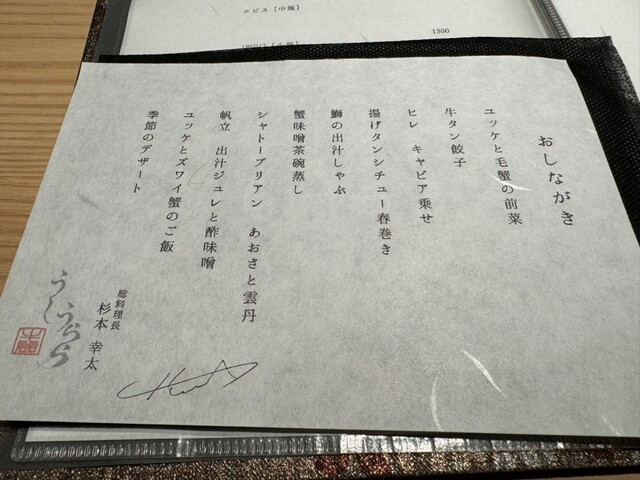 エビス【中瓶】
1300
おしながき
ユッケと毛蟹の前菜
牛タン餃子
ヒレ キャビア乗せ
揚げタンシチュー春巻き
鰤の出汁しゃぶ
蟹味噌茶碗蒸し
シャトーブリアン あおさと雲丹
帆立 出汁ジュレと酢味噌
ユッケとズワイ蟹のご飯
季節のデザート
総料理長
杉本 幸太
うしうらら